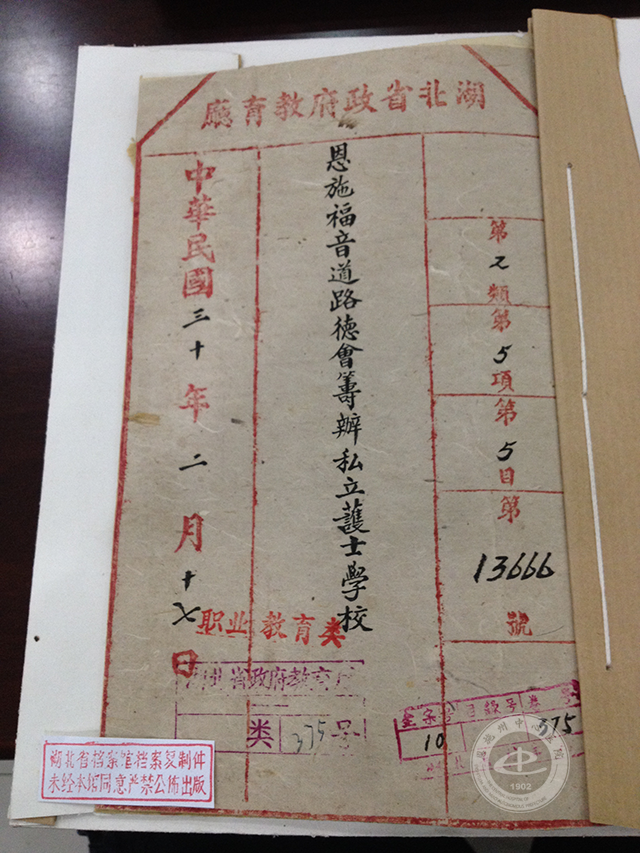 湖北省政府教育廳
第2類第5項第5目第13666號
恩施福音道路德會籌辦私立護士學校
职业教育类
中華民國三十年二月十七日
省政府教育
类 375号
全宗
号
10
375
湖北省档案馆档案复制件
未经本馆同意严禁公佈出版
1902